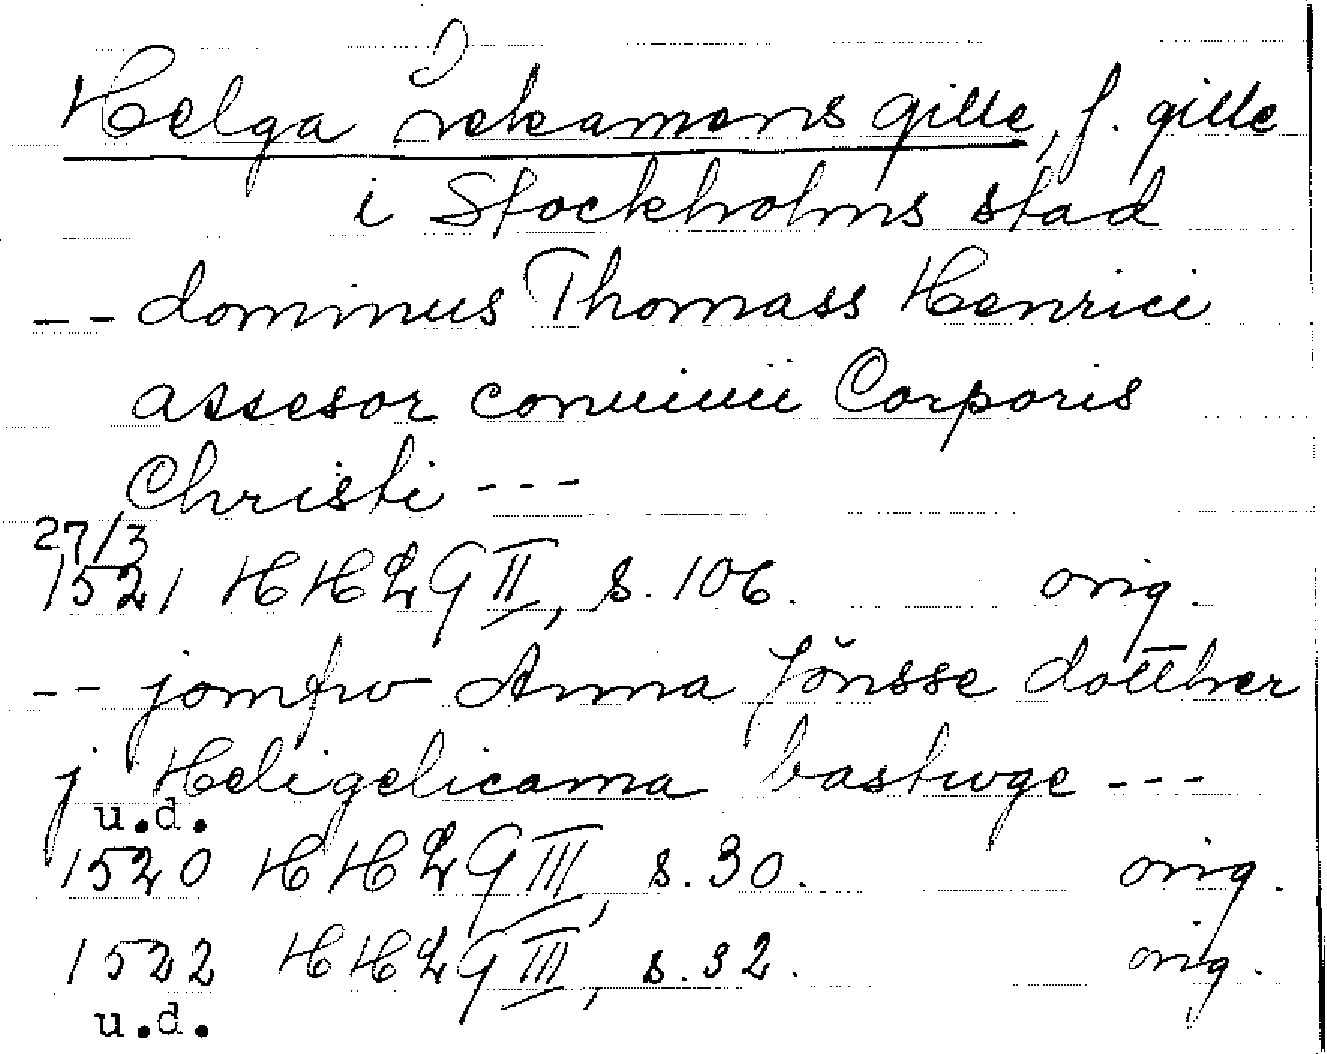 Helga lekamens gille, f. gille
i Stockholms stad
-- dominus Thomass Henrici
assesor conuiuii Corporis
Christi ---
27/3
1521 HHLG II, s. 106. orig.
-- jomfrv Anna Jönsse dotther
j Heligelicama bastwge ---
u.d.
1520 HHLG III, s. 30. orig.
1522 HHLG III, s. 32. orig.
u.d.